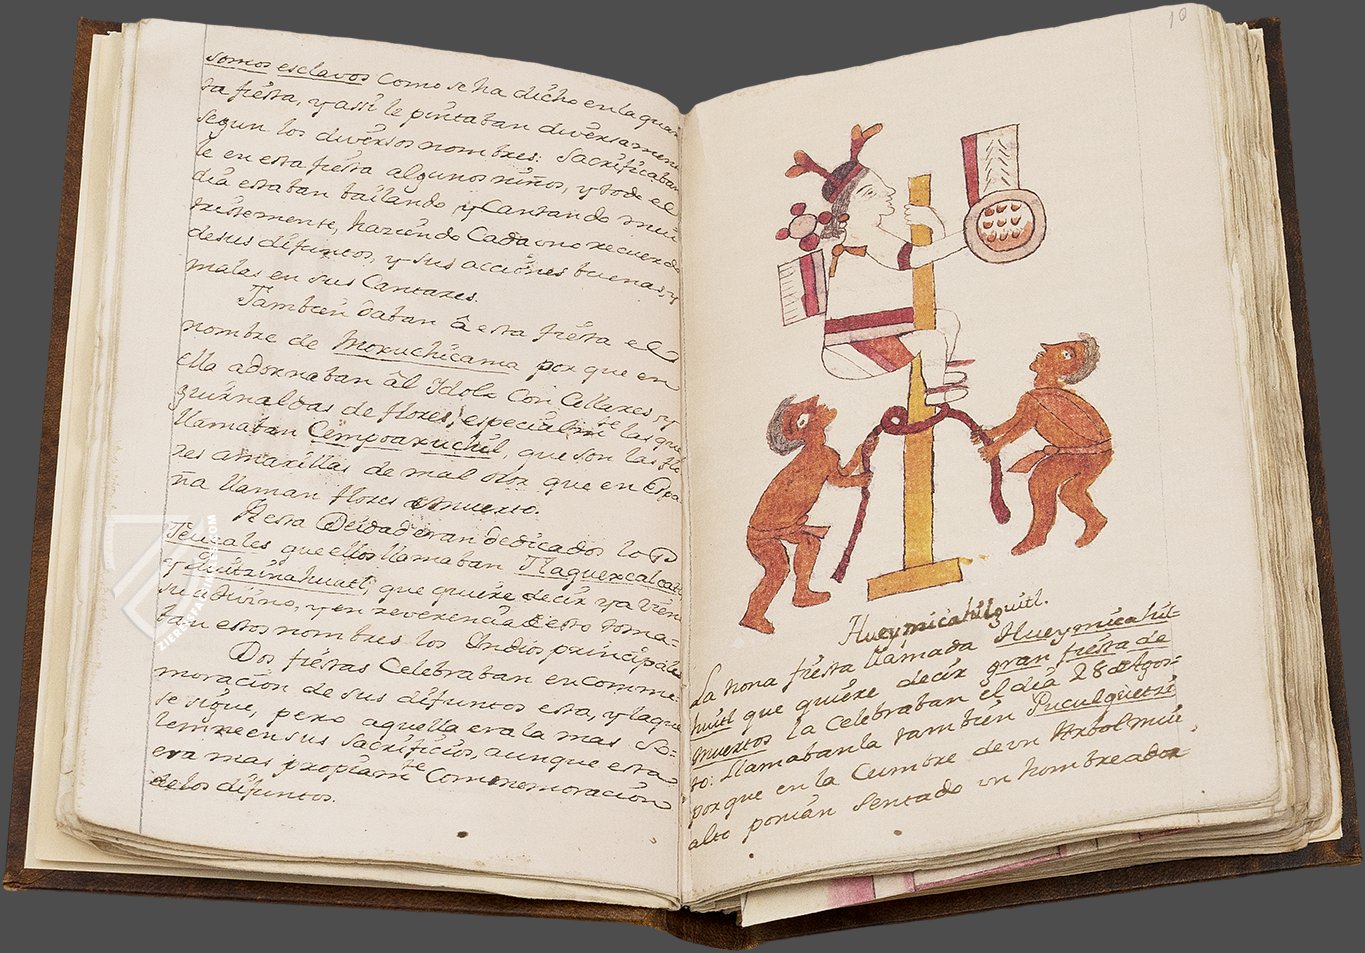 somos esclavos como se ha dicho en la quar
ta fiesta, y assi le pintaban diversamen
segun los diversos nombres: Sacrificaban
le en esta fiesta algunos niños, y todo el
dia estaban bailando y Cantando mui
tristemente, haziendo Cada uno recuerdo
de sus difuntos, y sus acciones buenas, y
malas en sus Cantares.
Tambien daban â esta fiesta el
nombre de Moxuchicama por que en
ella adornaban âl Idolo Con Collares, y
guirnaldas de flores, especialmte las que
llamaban Cempoaxuchil, que son las flo
res amarillas de mal olor que en Espa
ña llaman flores de muerto.
A esta Deidad eran dedicados los
que ellos llamaban
que quiere decir ya vien
su Divino, y en reverencia de esto toma-
ban estos nombres los Indios principales
Dos fiestas Celebraban en comme
moracion de sus difuntos esta, y la que
se sigue, pero aquella era la mas So-
lemne en sus Sacrificios, aunque esta
era mas propiamte Commemoracion
de los difuntos.
10
Hueymicahilguitl.
La nona fiesta llamada Hueymicahil-
huitl que quiere decir gran fiesta de
muertos la Celebraban el dia 28 de Agos-
to: Llamabanla tambien
porque en la Cumbre de un Arbol mui
alto ponian Sentado un hombre ador
ZIEREDFACSIMILES.COM